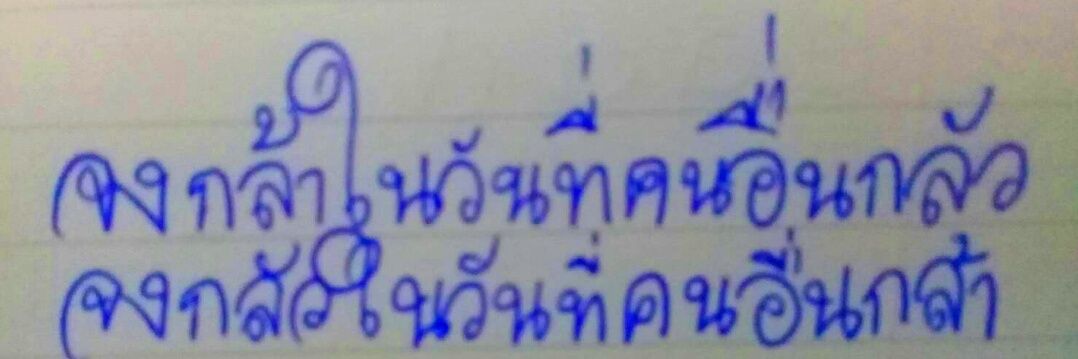 จงกล้าในวันที่คนอื่นกลัว
จงกลัวในวันที่คนอื่นกล้า